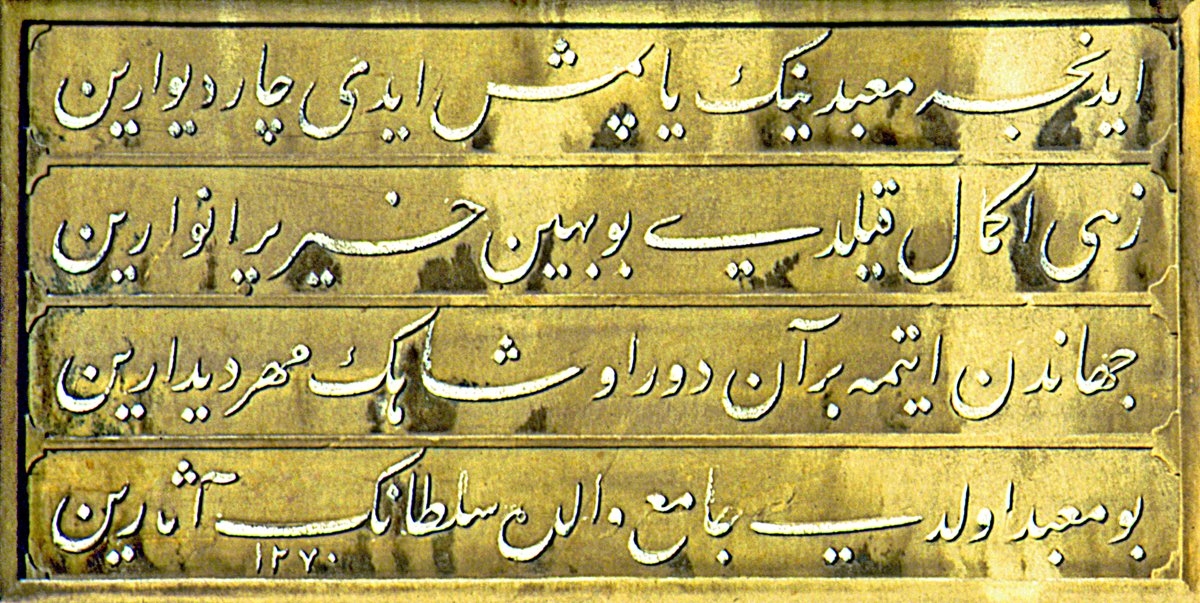 ایدنجه معبدینك یاپمش ایدی چار دیوارین
زهی اكمال قیلدی بو بهین خیر پر انوارین
جهاندن ایتمه بر آن دور او شاهك مهر دیدارین
بو معبد اولدی جامع والده سلطانك آثارین
١٢٧٠